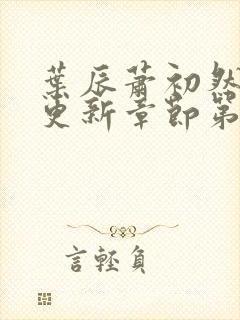 葉辰蕭初然
更新章節第
言輕負